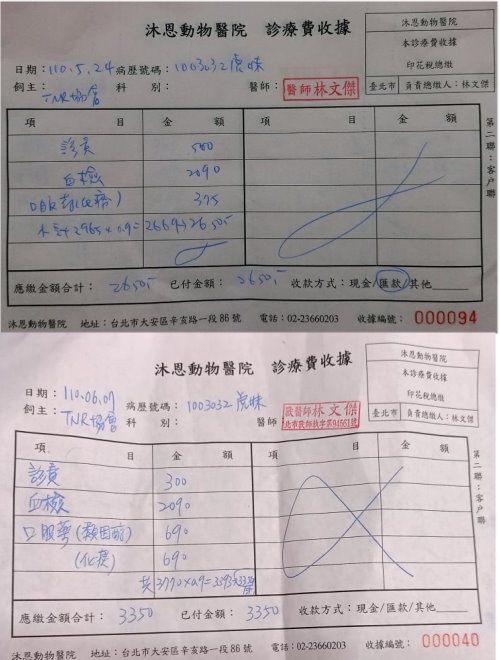 沐恩動物醫院 診療費收據
沐恩動物醫院
本診療費收據
印花稅總繳
臺北市 負責總繳人：林文傑
日期：110.5.24 病歷號碼：1003032虎妹
飼主：TNR協會 科 別： 醫師：醫師林文傑
項 目 金 額 項 目 金 額
診費 500
血檢 2090
口服藥 375
2965×0.9=2669→2650
應繳金額合計：2650 已付金額：2650 收款方式：現金/匯款/其他
沐恩動物醫院 地址：台北市大安區辛亥路一段86號 電話：02-23660203 收據編號：000094
第二聯：客戶聯
沐恩動物醫院 診療費收據
沐恩動物醫院
本診療費收據
印花稅總繳
臺北市 負責總繳人：林文傑
日期：110.06.07 病歷號碼：1003032虎妹
飼主：TNR協會 科 別： 醫師 獸醫師林文傑
項 目 金 額 項 目 金 額
診費 300
血檢 2090
口服藥 690
690
共3770×0.9=3393
應繳金額合計：3350 已付金額：3350 收款方式：現金/匯款/其他
沐恩動物醫院 地址：台北市大安區辛亥路一段86號 電話：02-23660203 收據編號：000040
第二聯：客戶聯